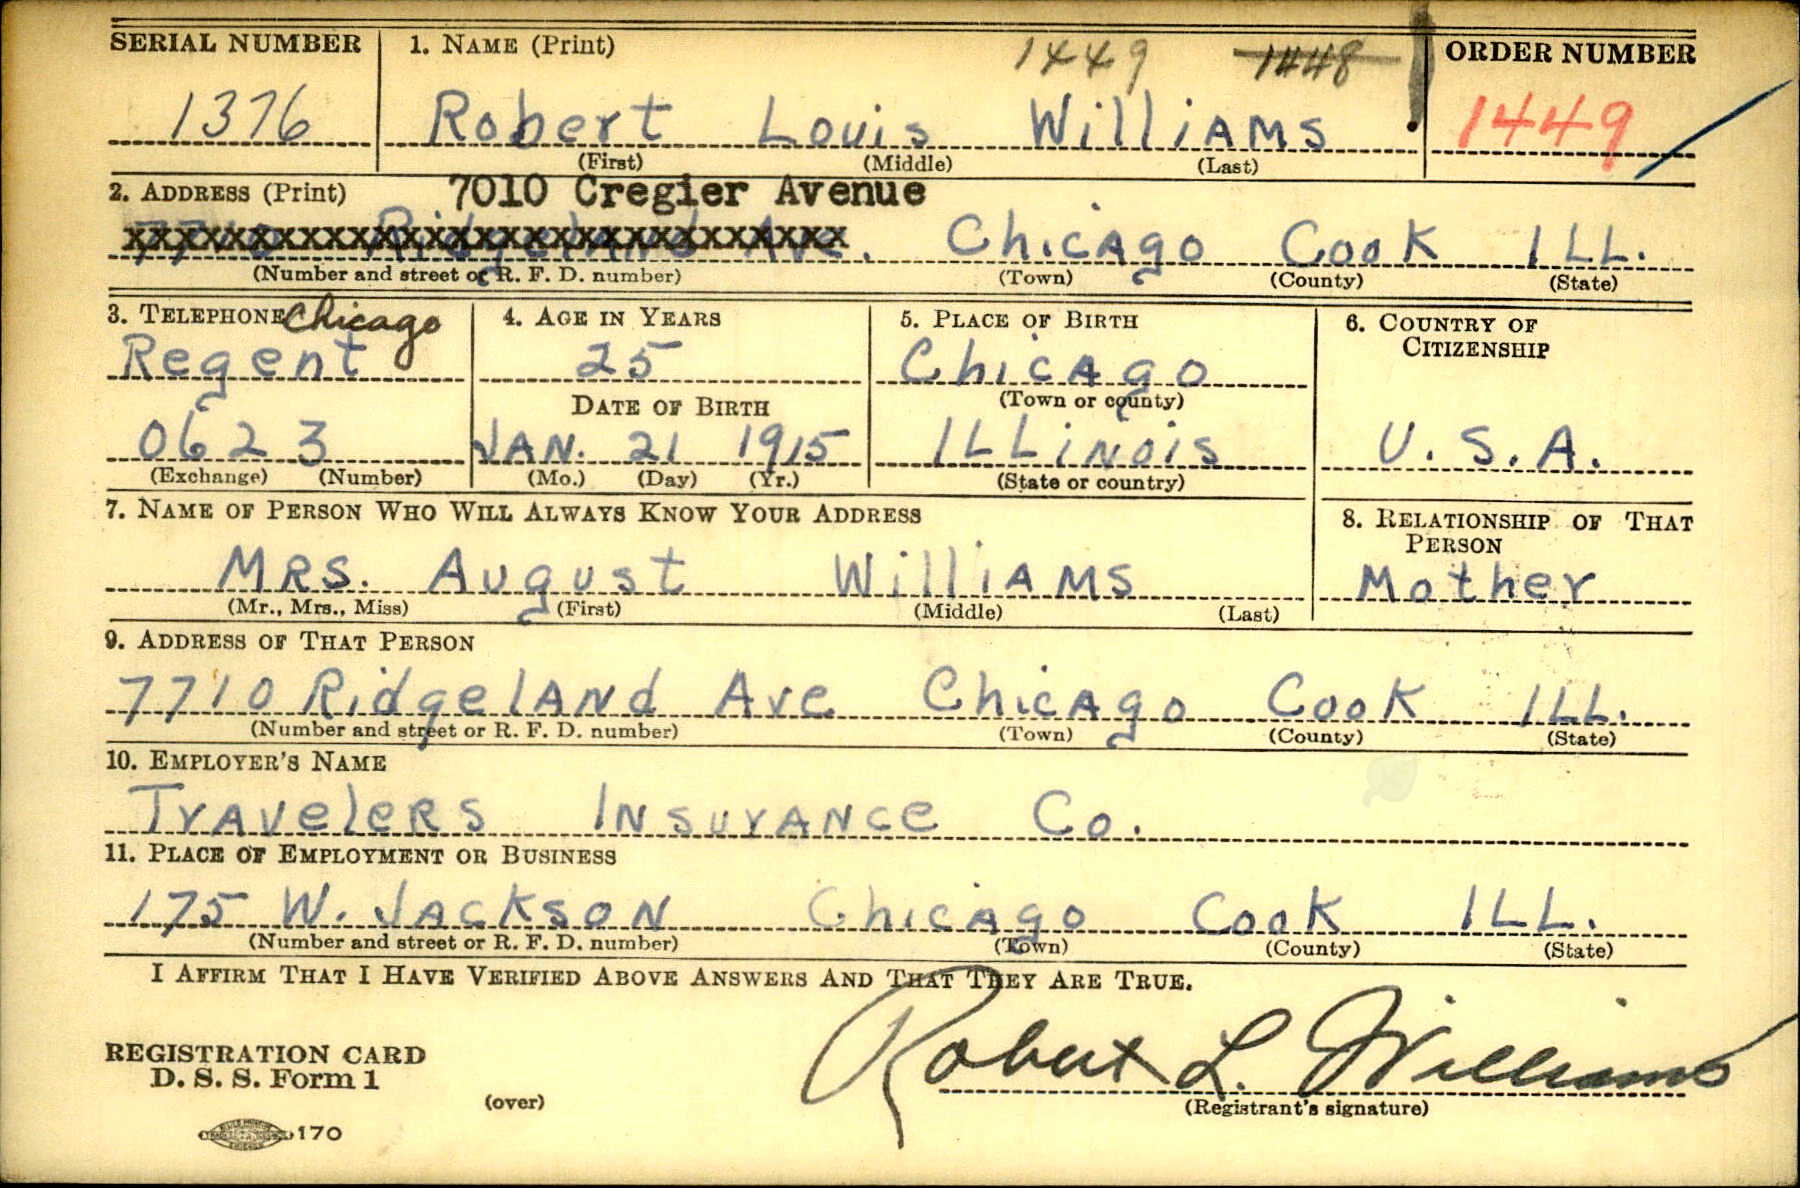 SERIAL NUMBER 1. NAME (Print) 1449 1448 ORDER NUMBER
1376 Robert Louis Williams 1449
(First) (Middle) (Last)
2. ADDRESS (Print) 7010 Cregier Avenue
7710 Ridgeland Ave. Chicago Cook ILL.
(Number and street or R. F. D. number) (Town) (County) (State)
3. TELEPHONE Chicago 4. AGE IN YEARS 5. PLACE OF BIRTH 6. COUNTRY OF
CITIZENSHIP
Regent 25 Chicago
DATE OF BIRTH (Town or county)
0623 JAN. 21 1915 ILLINOIS U.S.A.
(Exchange) (Number) (Mo.) (Day) (Yr.) (State or country)
7. NAME OF PERSON WHO WILL ALWAYS KNOW YOUR ADDRESS 8. RELATIONSHIP OF THAT
PERSON
MRS. August Williams Mother
(Mr., Mrs., Miss) (First) (Middle) (Last)
9. ADDRESS OF THAT PERSON
7710 Ridgeland Ave Chicago Cook ILL.
(Number and street or R. F. D. number) (Town) (County) (State)
10. EMPLOYER'S NAME
Travelers Insurance Co.
11. PLACE OF EMPLOYMENT OR BUSINESS
175 W. Jackson Chicago Cook ILL.
(Number and street or R. F. D. number) (Town) (County) (State)
I AFFIRM THAT I HAVE VERIFIED ABOVE ANSWERS AND THAT THEY ARE TRUE.
REGISTRATION CARD
D. S. S. Form 1
Robert L. Williams
(over) (Registrant's signature)
170